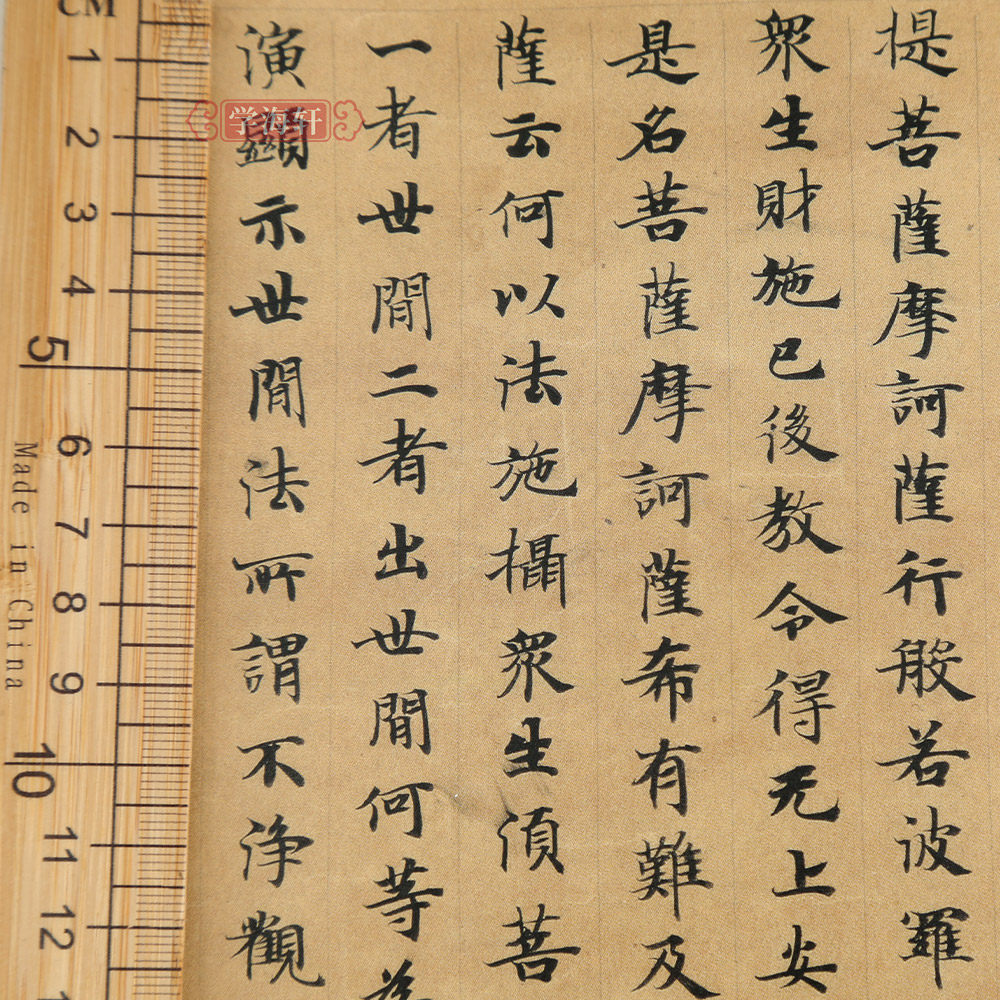 提菩薩摩訶薩行般若波羅
眾生財施已後教令得无上安
是名菩薩摩訶薩希有難及
薩云何以法施攝眾生須菩
一者世間二者出世間何等為
演顯示世間法所謂不淨觀
学海轩
CM
1
2
3
4
5
6
7
8
9
10
11
12
Made in China